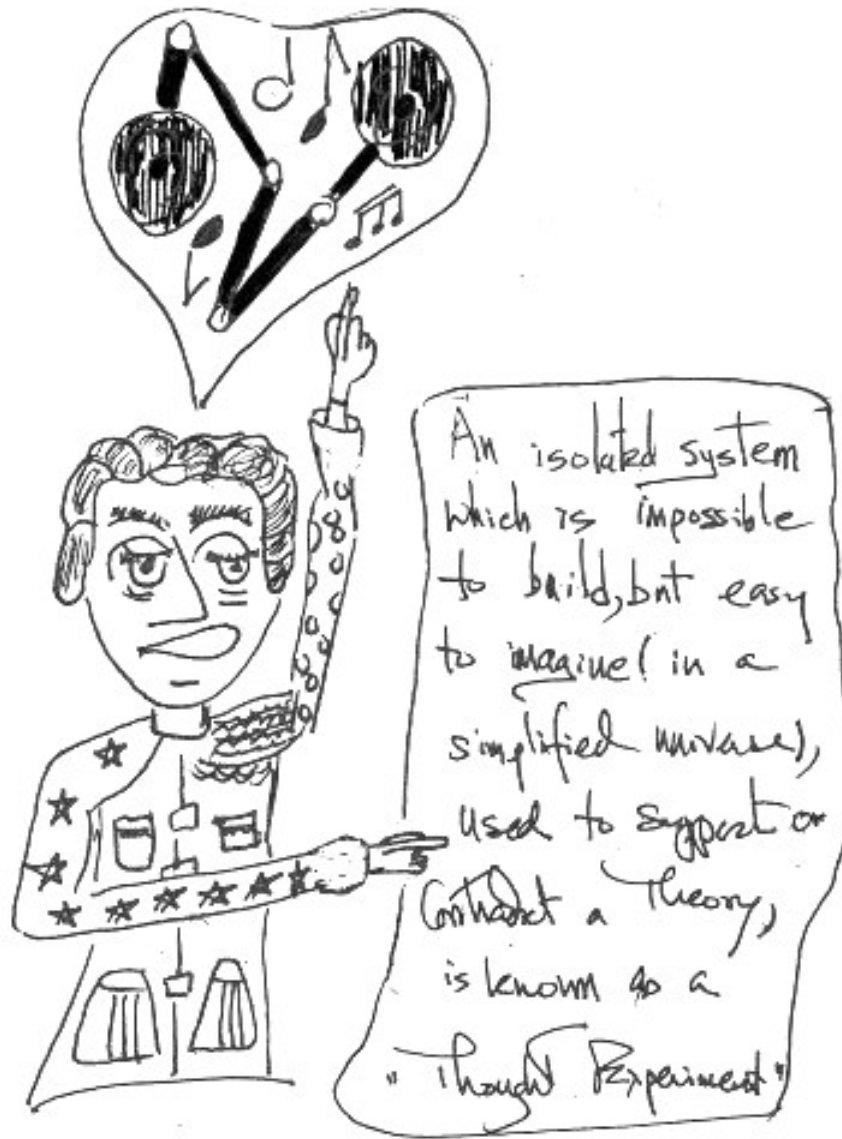 An isolated system
which is impossible
to build, but easy
to imagine (in a
simplified universe),
used to support or
Contradict a Theory,
is known as a
"Thought Experiment"